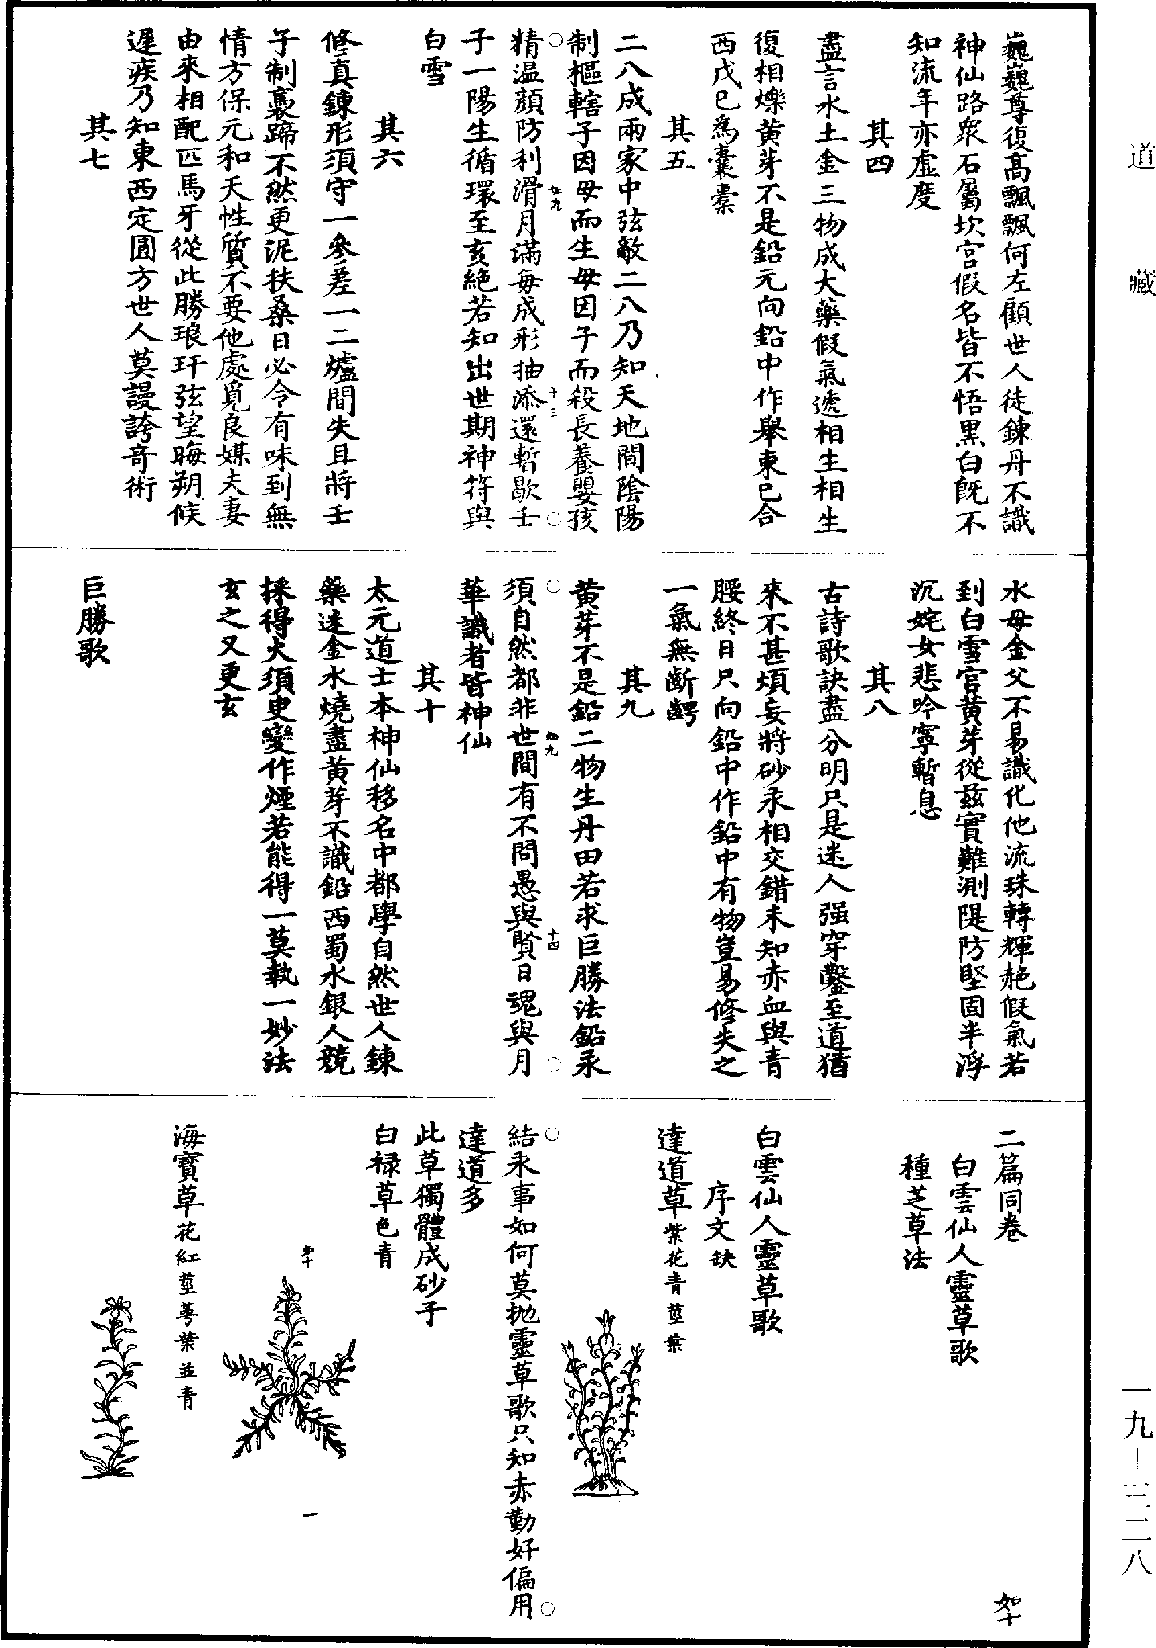 道藏
巍巍尊復高飄飄何左顧世人徒鍊丹不識
神仙路衆石屬坎宮假名皆不悟黑白旣不
知流年亦虛度
其四
盡言水土金三物成大藥假氣遞相生相生
復相爍黃芽不是鉛元向鉛中作舉東已合
西戊巳爲囊橐
其五
二八成兩家中弦敵二八乃知天地間陰陽
制樞轄子因母而生母因子而殺長養嬰孩
精温顏防利滑月滿每成形抽添還暫歇壬
如九
十三
子一陽生循環至亥絶若知出世期神符與
白雪
其六
修真鍊形須守一參差一二爐間失且將壬
子制裹蹄不然更泥扶桑日必令有味到無
情方保元和天性質不要他處覓良媒夫妻
由來相配匹馬牙從此勝琅玕弦望晦朔候
遲疾乃知東西定圓方世人莫謾誇奇術
其七
水母金父不易識化他流珠轉輝赩假氣若
到白雪宮黃芽從茲實難測隄防堅固半浮
沉姹女悲吟寧暫息
其八
古詩歌訣盡分明只是迷人强穿鑿至道猶
來不甚煩妄將砂汞相交錯未知赤血與青
腰終日只向鉛中作鉛中有物豈易修失之
一氣無斷齶
其九
黃芽不是鉛二物生丹田若求巨勝法鉛汞
須自然都非世間有不問愚與賢日魂與月
如九
十四
華識者皆神仙
其十
太元道士本神仙移名中都學自然世人鍊
藥迷金水燒盡黃芽不識鉛西蜀水銀人競
採得火須臾變作煙若能得一莫執一妙法
玄之又更玄
巨勝歌
二篇同卷
如十
白雲仙人靈草歌
種芝草法
白雲仙人靈草歌
序文缺
達道草紫花青莖葉
結汞事如何莫抛靈草歌只知赤勤好偏用
達道多
此草獨體成砂子
白祿草色青
如十
一
海寶草花紅莖蕚葉並青
一九－三二八